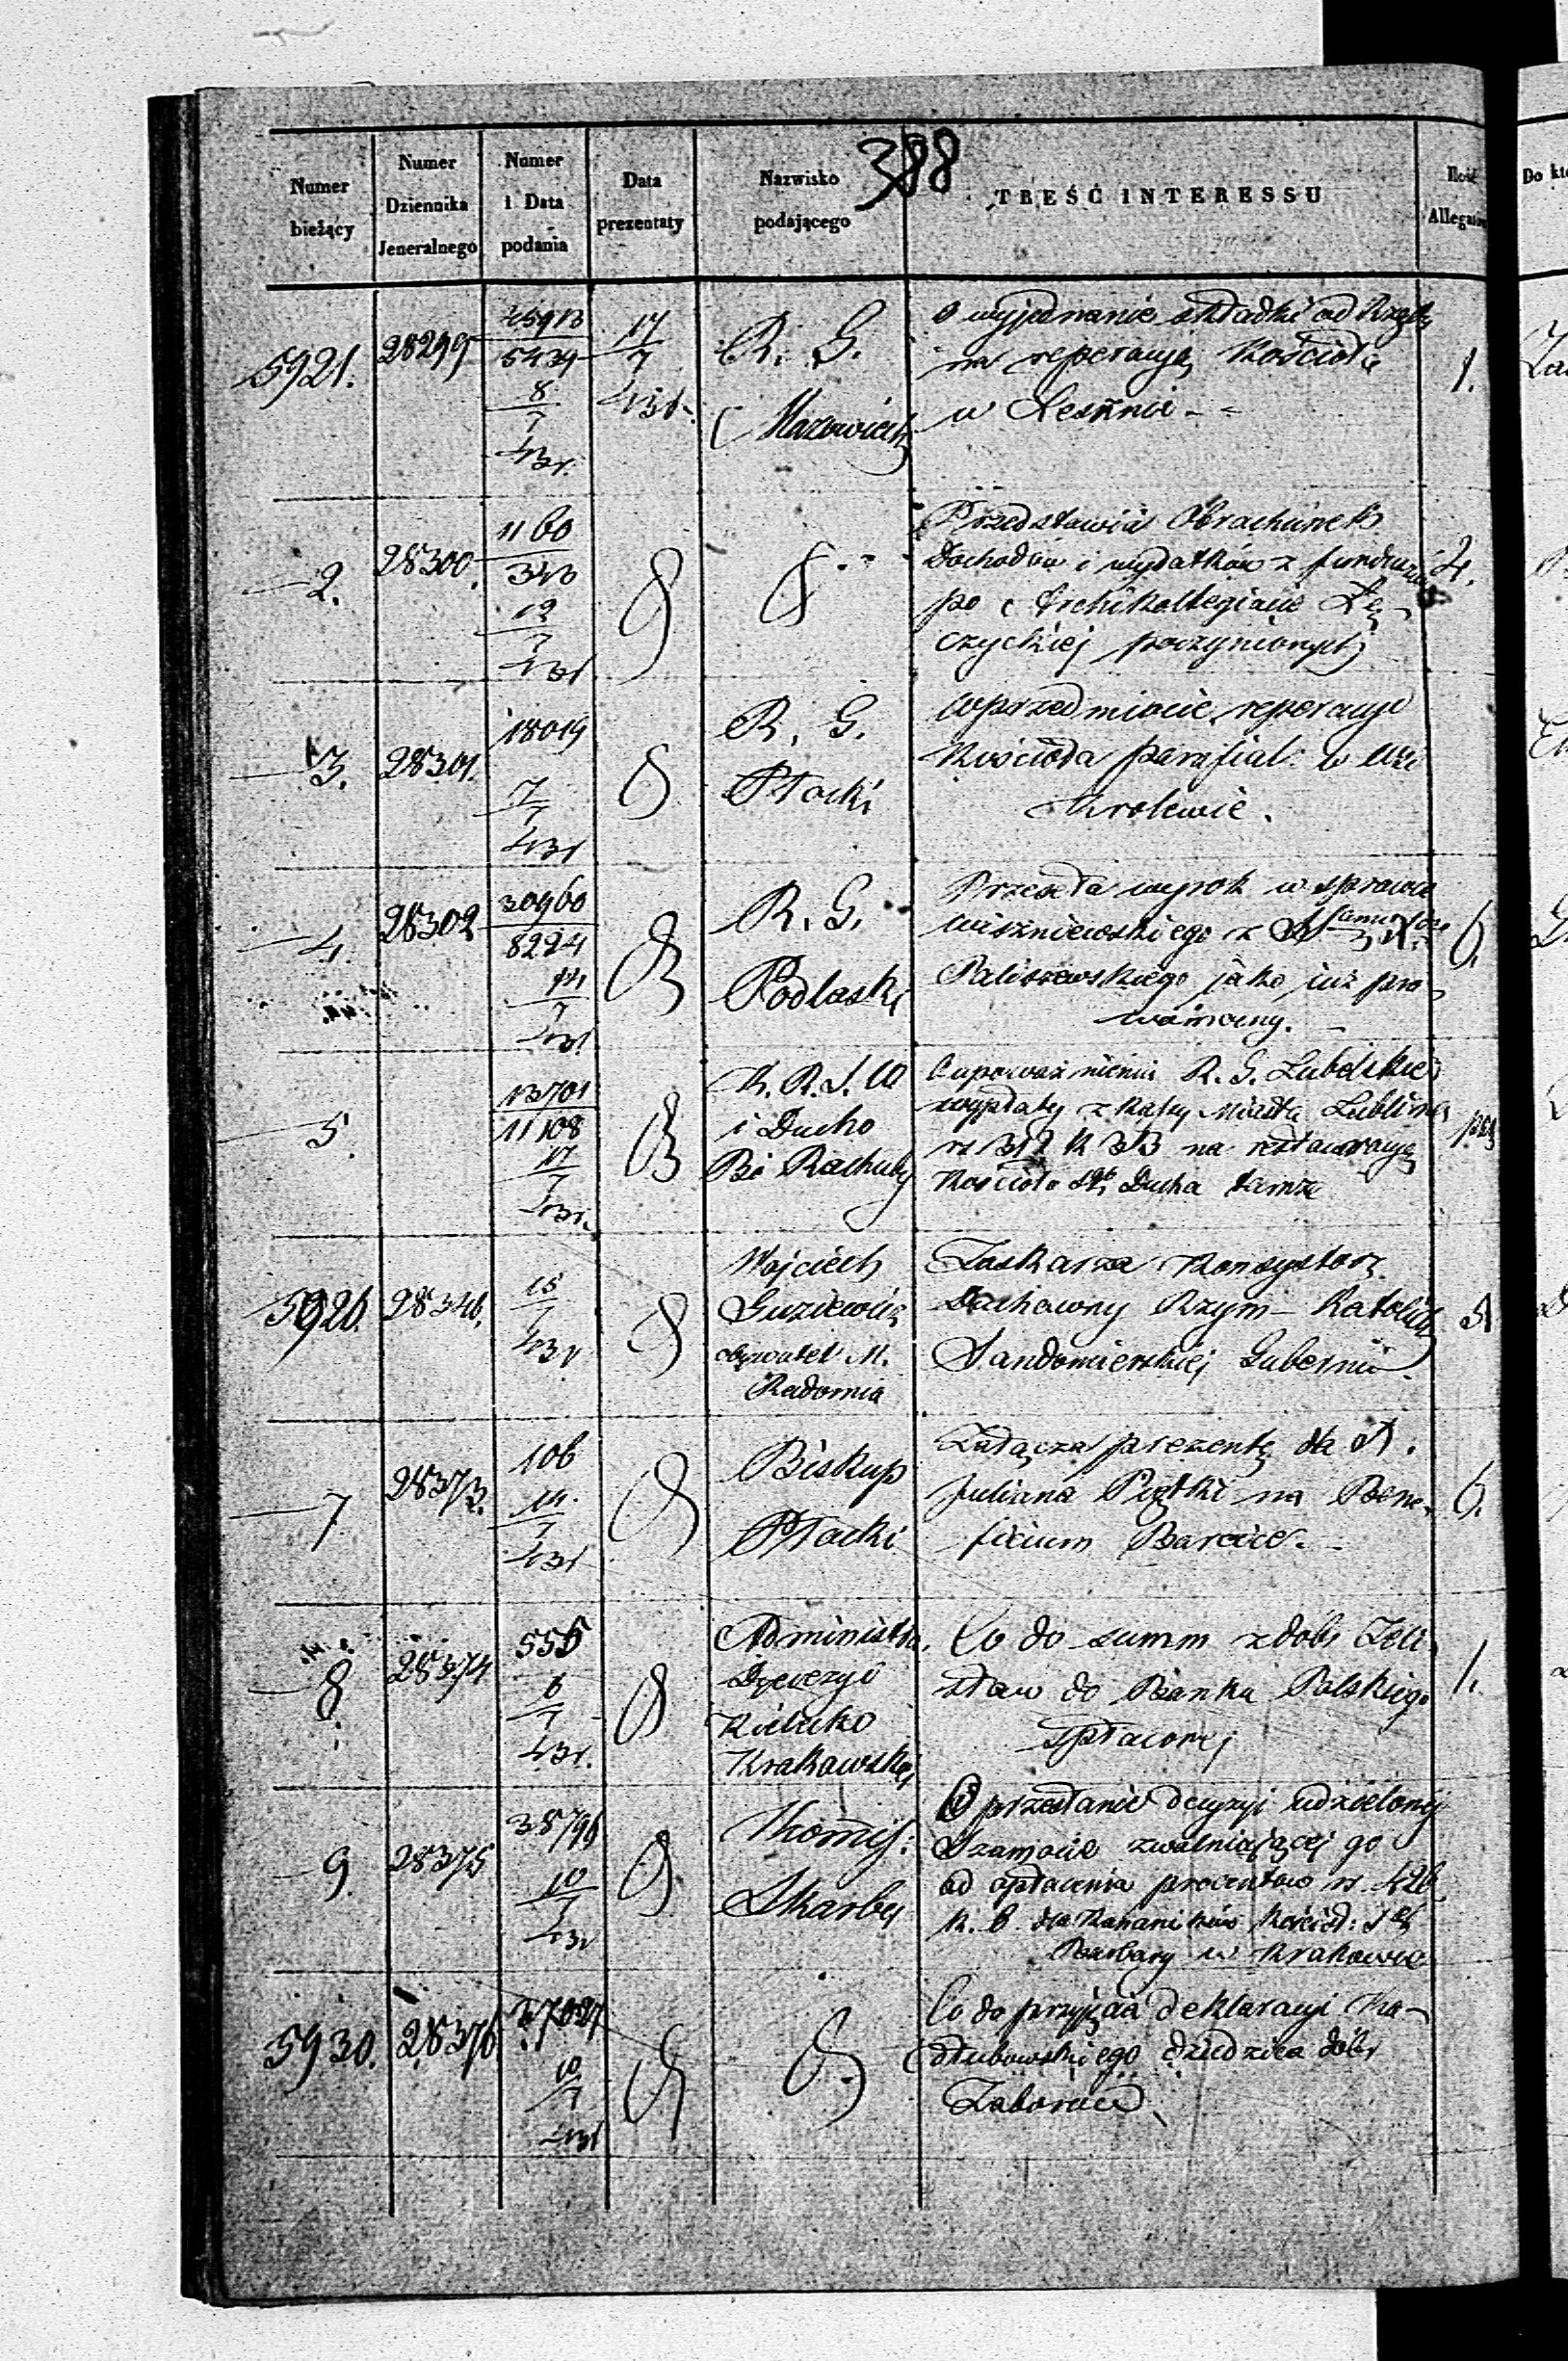 388
Numer bieżący
Numer Dziennika Jeneralnego
Numer i Data podania
Data prezentaty
Nazwisko podającego
TREŚĆ INTERESSU
Ilość Allegatów
5921.
28299
5434
8
7
17
7
R. G.
Mazowiecki
O wyjednanie składki od Rządu
na reperacyą Kościoła
w
1.
2.
28300.
1160
343
12
7
Przedstawia Obrachunek
Dochodów i wydatków z funduszu
po Archikollegiacie Łę-
czyckiej poczynionych
4.
3.
28301.
18019
7
7
R. G.
Płocki
W przedmiocie reperacyi
Kościoła parafial: w
Królewie.
4.
28302
30960
8224
14
7
R. G.
Podlaski
Przesyła wyrok w sprawie
Wiszniewskiego z
Paliszewskiego jako już pra-
womocny.
6.
5.
13701
11108
17
7
K. R. S. W
i Ducho
Bió Rachuby
O upoważnienie R. G. Lubelskiej
wypłaty z Kassy Miasta Lublina
rs 312 K 33 na restauracyą
Kościoła Sgo Ducha tamże
5926.
28346.
15
7
Wojciech
Guziewicz
obywatel M.
Radomia
Zaskarza Konsystorz
Duchowny Rzym-Katolicki
Sandomierskiej Gubernii.
7
28373.
106
14
7
Biskup
Płocki
Załącza prezentę dla X.
Juliana Piątki na Bene-
ficium Barcice.
6.
8.
28374
556
6
7
Administra.
Dyecezyi
Kielecko
Krakowskiej
Co do summ z dóbr Zeli-
sław do Banku Polskiego
spłaconej
1.
9.
28375
38796
10
7
Kommis:
Skarbu
O przesłanie decyzyi udzielonej
Szamocie zwalniającej go
od opłacenia procentów rs. 426
K. 6. dla Kanoników Kościoł: Stej
Barbary w Krakowie
5930.
28376
37027
10
7
Co do przyjęcia deklaracyi Ka-
dłubowskiego dziedzica dóbr
Zaborów